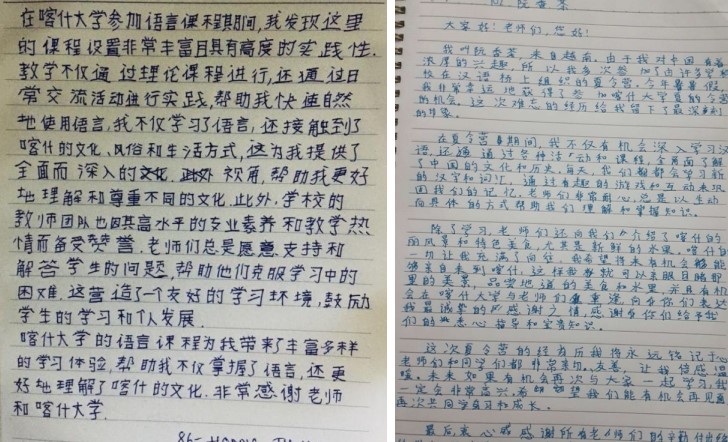 在喀什大学参加语言课程期间,我发现这里
的课程设置非常丰富且具有高度的实践性.
教学不仅通过理论课程进行,还通过日
常交流活动进行实践,帮助我快速自然
地使用语言,我不仅学习了语言,还接触到了
喀什的文化、风俗和生活方式,这为我提供了
全面而深入的文化 视角,帮助我更好
地理解和尊重不同的文化.此外,学校的
教师团队也因其高水平的专业素养和教学热
情而备受赞誉.老师们总是愿意支持和
解答学生的问题,帮助他们克服学习中的
困难.这营造了一个友好的学习环境,鼓励
学生的学习和个人发展.
喀什大学的语言课程为我带来了丰富多样
的学习体验,帮助我不仅掌握了语言,还更
好地理解了喀什的文化.非常感谢老师
和喀什大学.
大家好!老师们,您好!
我叫阮香茶,来自越南.由于我对中国有着
浓厚的兴趣,所以我多次参加了由许多学
校在汉语桥上组织的夏令营.今年暑假,
我非常幸运地获得了参加喀什大学夏令营
的机会.这次难忘的经历给我留下了最深刻
的印象.
在夏令营期间,我不仅有机会深入学习汉
语,还通过各种活动和课程,全面了解
了中国的文化和历史.每天,我们都会学习新
的汉字和词汇,通过有趣的游戏和互动来巩
固我们的记忆.老师们非常耐心,总是以生动
而具体的方式帮助我们理解和掌握知识.
除了学习,老师们还向我们介绍了喀什的
丽风景和特色美食,尤其是新鲜的水果.
一切让我充满了向往.我希望将来有机会能
够亲自来到喀什,这样我就可以亲眼目睹那
里的美景,品尝地道的美食和水果,并且有机
会在喀什大学与老师们重逢,向你们表达
我最诚挚的感谢之情,感谢你们给予我
们的悉心指导和宝贵知识.
这次夏令营的经历我将永远铭记于心
老师们和同学们都非常亲切、友善,让我倍感温
暖.未来如果有机会再次与大家一起学习,我
一定会非常高兴.希望我们能有机会再见面
再次共同学习和成长.
最后,衷心感谢所有老师们的辛勤付出